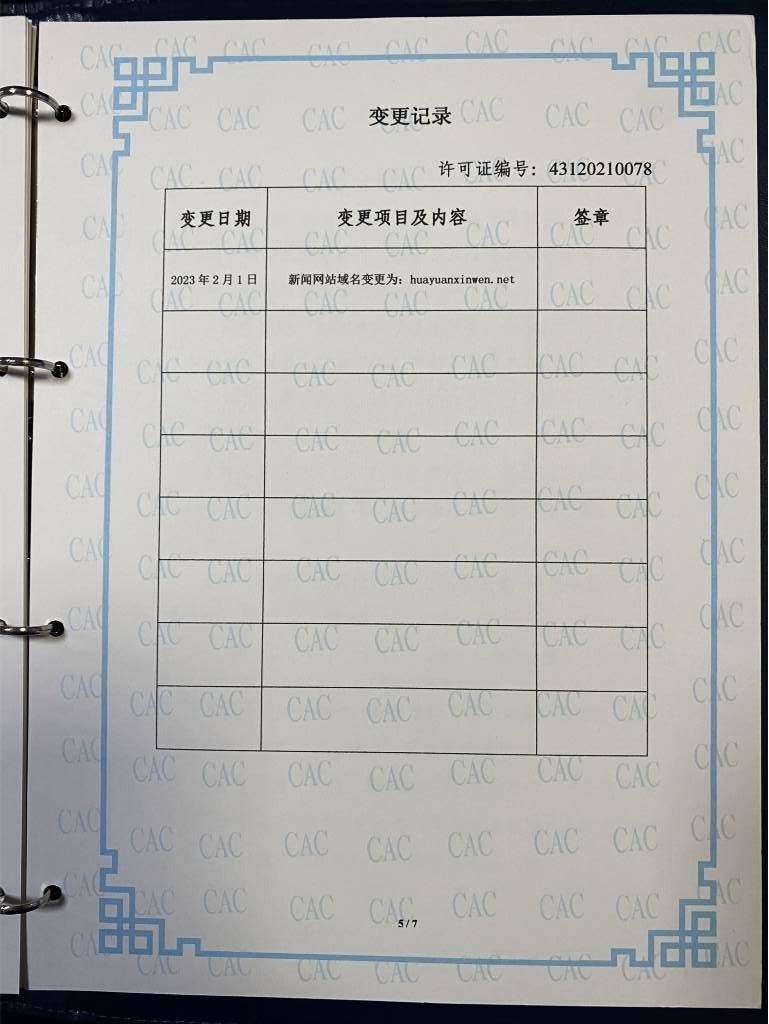 变更记录
许可证编号：43120210078
变更日期 变更项目及内容 签章
2023年2月1日 新闻网站域名变更为：huayuanxinwen.net
5/7